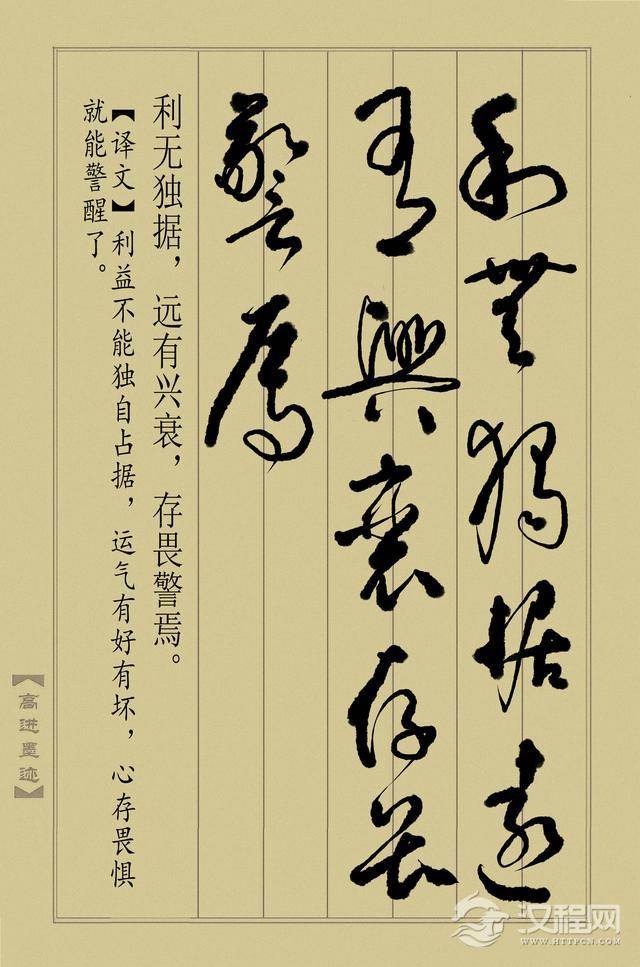 利無獨據遠
有興衰存畏
警焉
利无独据，远有兴衰，存畏警焉。
【译文】利益不能独自占据，运气有好有坏，心存畏惧
就能警醒了。
【高进墨迹】
汉程网
WWW.HTTPCN.COM